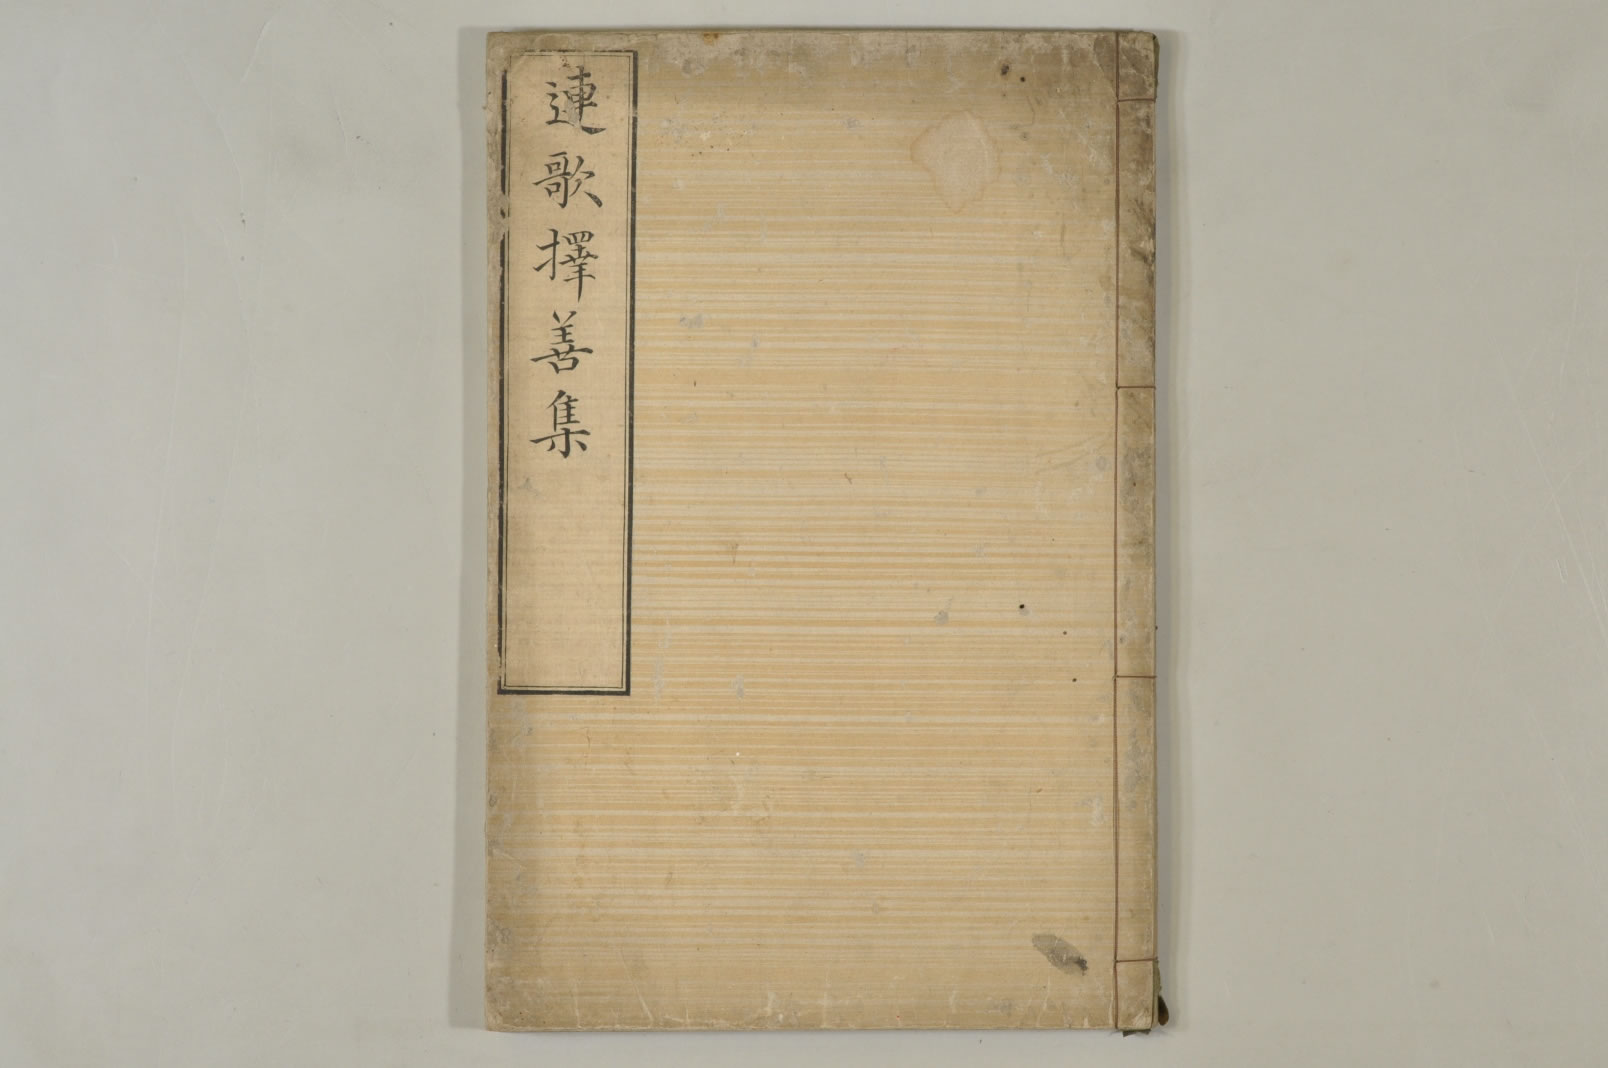 連歌擇善集